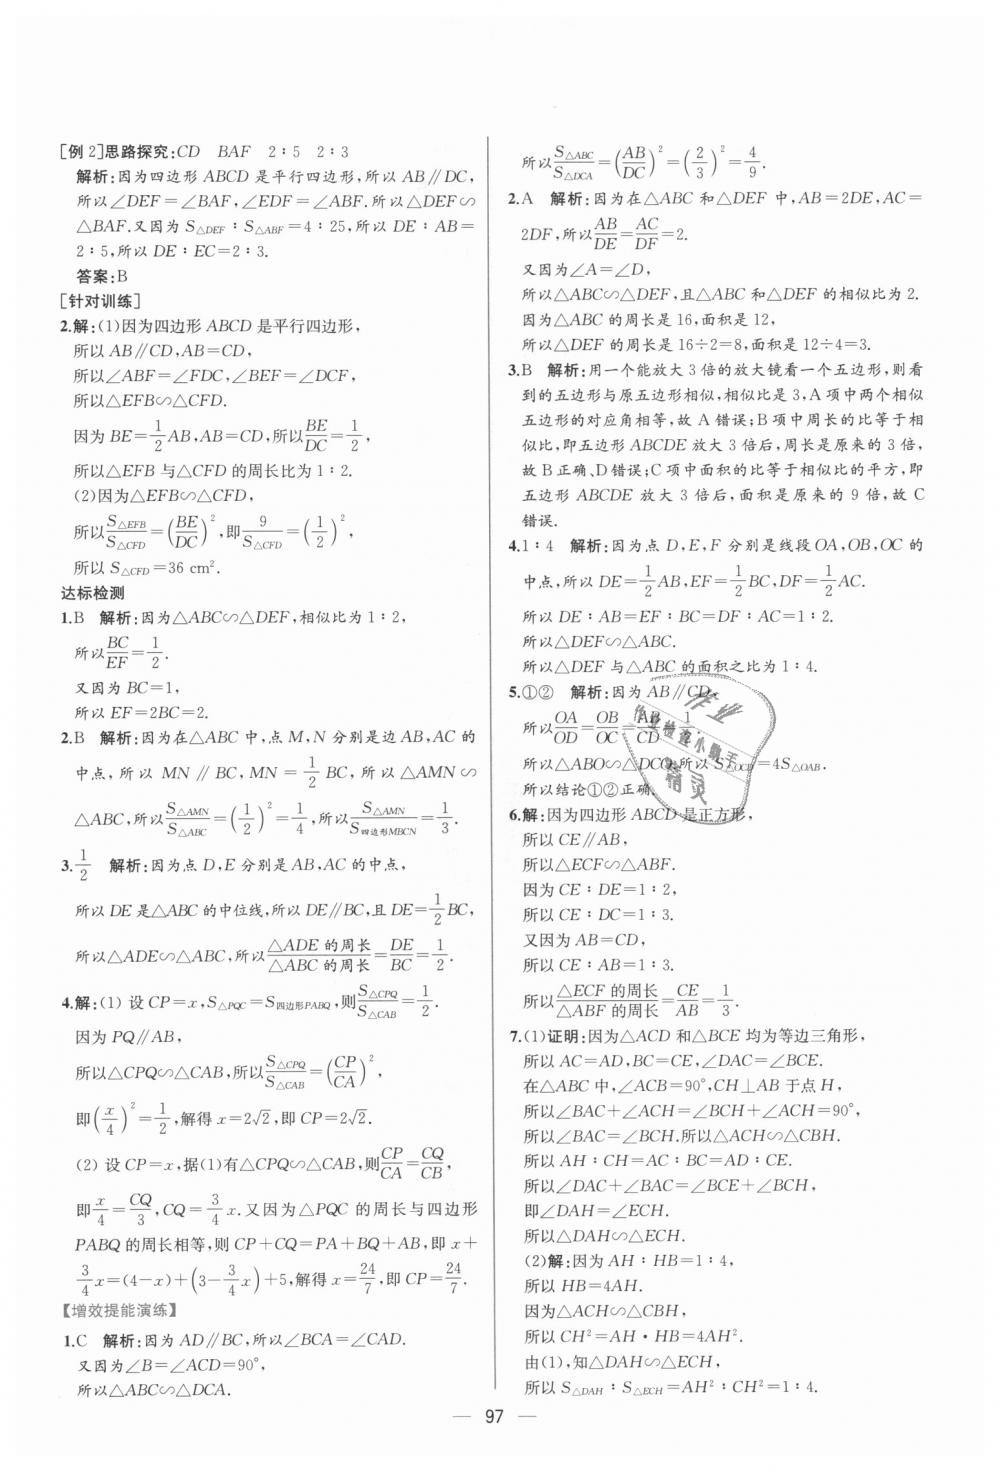 [例2]思路探究:CD BAF 2∶5 2∶3
解析:因为四边形ABCD是平行四边形,所以AB∥DC,
所以∠DEF=∠BAF,∠EDF=∠ABF.所以△DEF∽
△BAF.又因为S△DEF∶S△ABF=4∶25,所以DE∶AB=
2∶5,所以DE∶EC=2∶3.
答案:B
[针对训练]
2.解:(1)因为四边形ABCD是平行四边形,
所以AB∥CD,AB=CD,
所以∠ABF=∠FDC,∠BEF=∠DCF,
所以△EFB∽△CFD.
因为BE=1/2AB,AB=CD,所以BE/DC=1/2,
所以△EFB与△CFD的周长比为1∶2.
(2)因为△EFB∽△CFD,
所以S△EFB/S△CFD=(BE/DC)²,即9/S△CFD=(1/2)²,
所以S△CFD=36 cm².
达标检测
1.B 解析:因为△ABC∽△DEF,相似比为1∶2,
所以BC/EF=1/2.
又因为BC=1,
所以EF=2BC=2.
2.B 解析:因为在△ABC中,点M,N分别是边AB,AC的
中点,所以MN∥BC,MN=1/2BC,所以△AMN∽
△ABC,所以S△AMN/S△ABC=(1/2)²=1/4,所以S△AMN/S四边形MBCN=1/3.
3.1/2 解析:因为点D,E分别是AB,AC的中点,
所以DE是△ABC的中位线,所以DE∥BC,且DE=1/2BC,
所以△ADE∽△ABC,所以△ADE的周长/△ABC的周长=DE/BC=1/2.
4.解:(1)设CP=x,S△PQC=S四边形PABQ,则S△CPQ/S△CAB=1/2.
因为PQ∥AB,
所以△CPQ∽△CAB,所以S△CPQ/S△CAB=(CP/CA)²,
即(x/4)²=1/2,解得x=2√2,即CP=2√2.
(2)设CP=x,据(1)有△CPQ∽△CAB,则CP/CA=CQ/CB,
即x/4=CQ/3,CQ=3/4x.又因为△PQC的周长与四边形
PABQ的周长相等,则CP+CQ=PA+BQ+AB,即x+
3/4x=(4-x)+(3-3/4x)+5,解得x=24/7,即CP=24/7.
【增效提能演练】
1.C 解析:因为AD∥BC,所以∠BCA=∠CAD.
又因为∠B=∠ACD=90°,
所以△ABC∽△DCA.
所以S△ABC/S△DCA=(AB/DC)²=(2/3)²=4/9.
2.A 解析:因为在△ABC和△DEF中,AB=2DE,AC=
2DF,所以AB/DE=AC/DF=2.
又因为∠A=∠D,
所以△ABC∽△DEF,且△ABC和△DEF的相似比为2.
因为△ABC的周长是16,面积是12,
所以△DEF的周长是16÷2=8,面积是12÷4=3.
3.B 解析:用一个能放大3倍的放大镜看一个五边形,则看
到的五边形与原五边形相似,相似比是3,A项中两个相似
五边形的对应角相等,故A错误;B项中周长的比等于相
似比,即五边形ABCDE放大3倍后,周长是原来的3倍,
故B正确、D错误;C项中面积的比等于相似比的平方,即
五边形ABCDE放大3倍后,面积是原来的9倍,故C
错误.
4.1∶4 解析:因为点D,E,F分别是线段OA,OB,OC的
中点,所以DE=1/2AB,EF=1/2BC,DF=1/2AC.
所以DE∶AB=EF∶BC=DF∶AC=1∶2.
所以△DEF∽△ABC.
所以△DEF与△ABC的面积之比为1∶4.
5.①② 解析:因为AB∥CD,
所以OA/OD=OB/OC=AB/CD=1
所以△ABO∽△DCO,所以S△OCD=4S△OAB.
所以结论①②正确.
6.解:因为四边形ABCD是正方形,
所以CE∥AB,
所以△ECF∽△ABF.
因为CE∶DE=1∶2,
所以CE∶DC=1∶3.
又因为AB=CD,
所以CE∶AB=1∶3.
所以△ECF的周长/△ABF的周长=CE/AB=1/3.
7.(1)证明:因为△ACD和△BCE均为等边三角形,
所以AC=AD,BC=CE,∠DAC=∠BCE.
在△ABC中,∠ACB=90°,CH⊥AB于点H,
所以∠BAC+∠ACH=∠BCH+∠ACH=90°,
所以∠BAC=∠BCH.所以△ACH∽△CBH.
所以AH∶CH=AC∶BC=AD∶CE.
所以∠DAC+∠BAC=∠BCE+∠BCH,
即∠DAH=∠ECH.
所以△DAH∽△ECH.
(2)解:因为AH∶HB=1∶4,
所以HB=4AH.
因为△ACH∽△CBH,
所以CH²=AH·HB=4AH².
由(1),知△DAH∽△ECH,
所以S△DAH∶S△ECH=AH²∶CH²=1∶4.
作业
作业检查小帮手
精灵
97